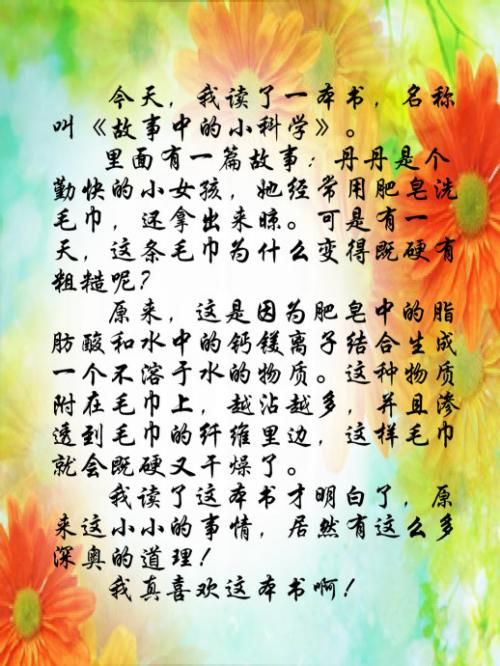 今天，我读了一本书，名称
叫《故事中的小科学》。
里面有一篇故事：丹丹是个
勤快的小女孩，她经常用肥皂洗
毛巾，还拿出来晾。可是有一
天，这条毛巾为什么变得既硬有
粗糙呢？
原来，这是因为肥皂中的脂
肪酸和水中的钙镁离子结合生成
一个不溶于水的物质。这种物质
附在毛巾上，越沾越多，并且渗
透到毛巾的纤维里边，这样毛巾
就会既硬又干燥了。
我读了这本书才明白了，原
来这小小的事情，居然有这么多
深奥的道理！
我真喜欢这本书啊！